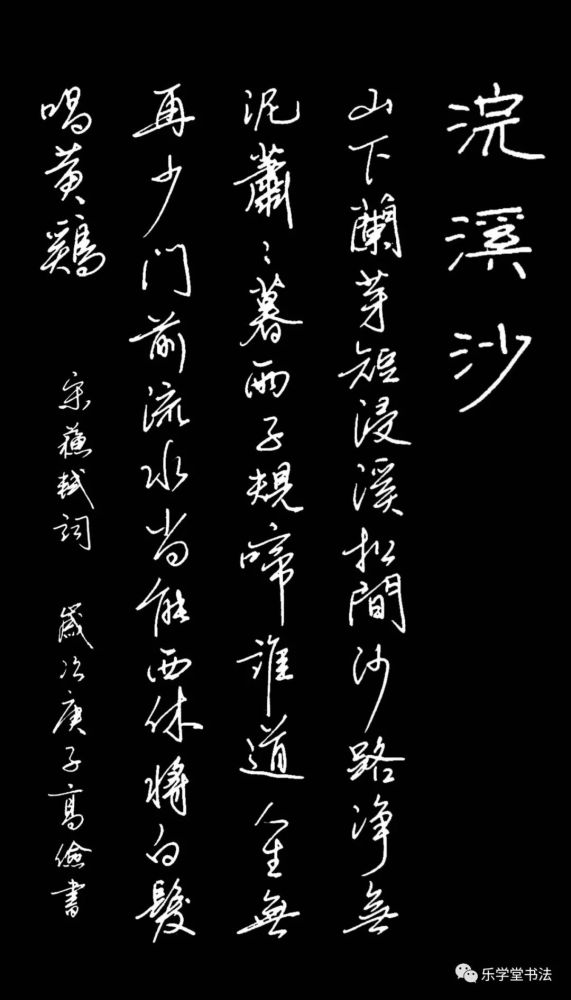 浣溪沙
山下蘭芽短浸溪松間沙路净無
泥蕭〻暮雨子規啼誰道人生無
再少门前流水尚能西休將白髮
唱黄鷄
宋蘇軾詞 歲次庚子高儉書
乐学堂书法